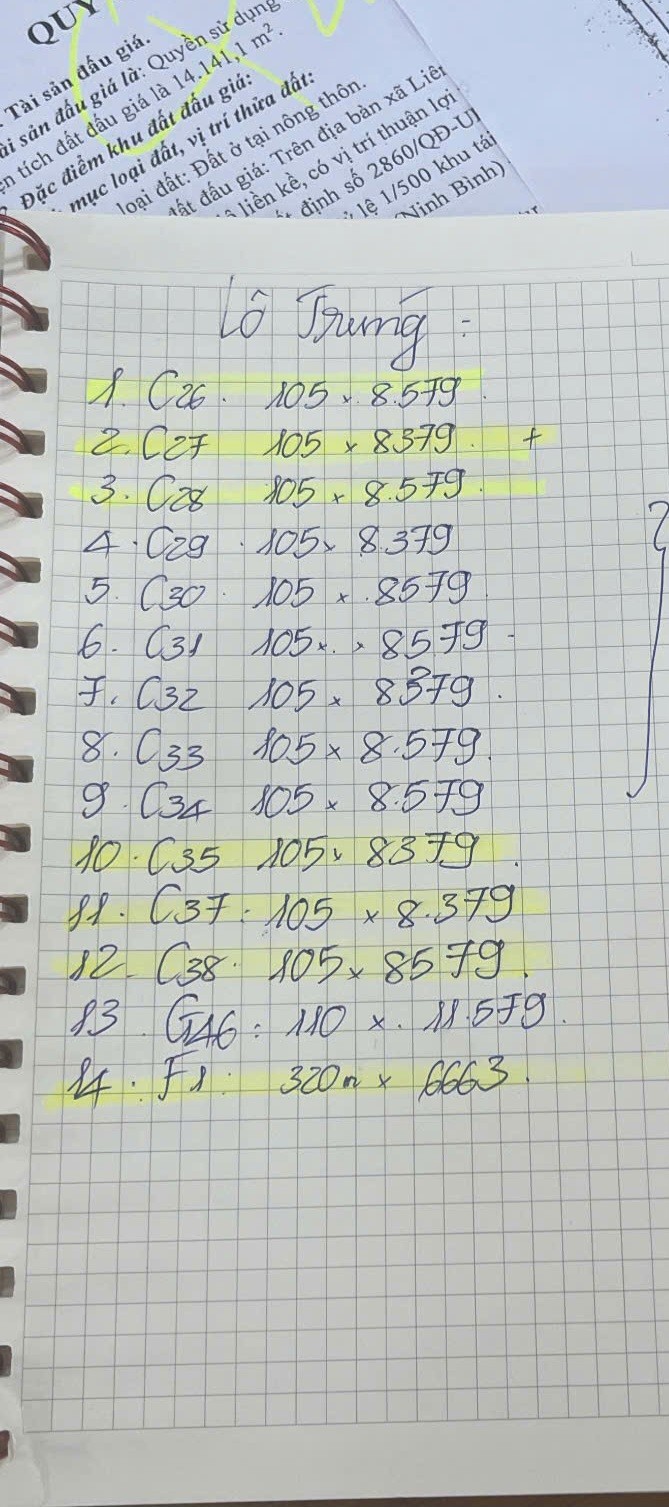 QUY
Tài sản đấu giá.
ài sản đấu giá là: Quyền sử dụng
ện tích đất đấu giá là 14.141,1 m².
Đặc điểm khu đất đấu giá:
mục loại đất, vị trí thửa đất:
loại đất: Đất ở tại nông thôn.
đất đấu giá: Trên địa bàn xã Liê
liền kề, có vị trí thuận lợi
định số 2860/QĐ-U
lệ 1/500 khu tá
Ninh Bình)
Lô Trung :
1. C26. 105 x 8.579.
2. C27 105 x 8379. +
3. C28 105 x 8.579.
4. C29. 105x 8.379
5. C30. 105 x 8579
6. C31 105x. x 8579
7. C32 105 x 8379.
8. C33 105 x 8.579.
9. C34 105 x 8.579
10. C35 105x 8379.
11. C37: 105 x 8.379
12. C38. 105 x 8579.
13. G46: 110 x. 11.579.
14. F1: 320m x 6663.